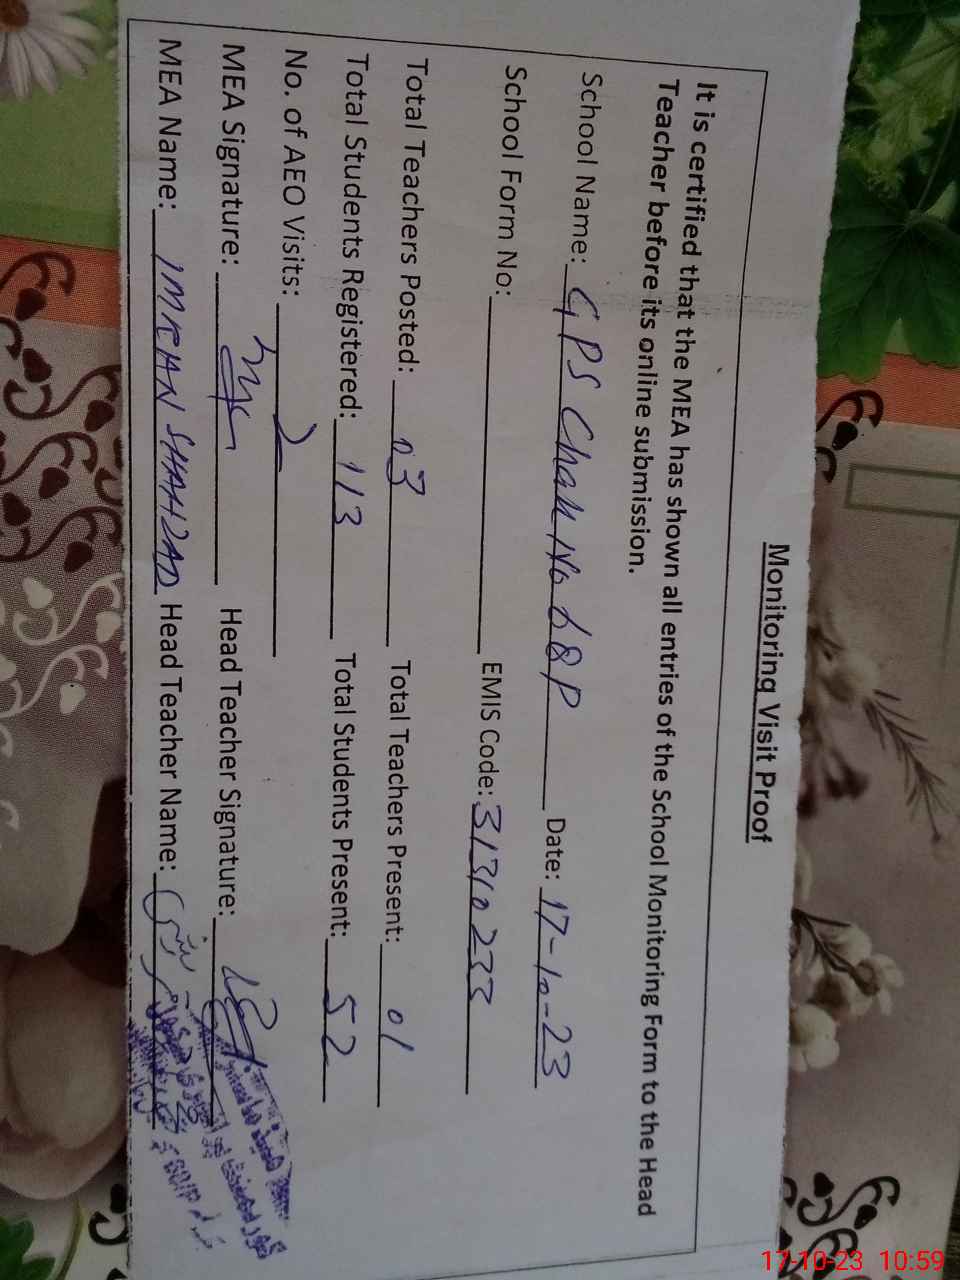 Monitoring Visit Proof
It is certified that the MEA has shown all entries of the School Monitoring Form to the Head
Teacher before its online submission.
School Name: GPS Chak No 68P Date: 17-10-23
School Form No: EMIS Code: 31310233
Total Teachers Posted: 03 Total Teachers Present: 01
Total Students Registered: 113 Total Students Present: 52
No. of AEO Visits: 2
MEA Signature: Head Teacher Signature:
MEA Name: IMRAN SHAHZAD Head Teacher Name:
17-10-23 10:59